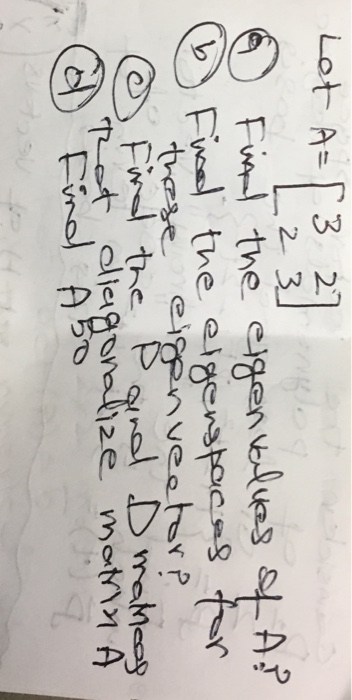 Let A = [3 2
2 3]
(a) Find the eigenvalues of A?
(b) Find the eigenspaces for
these eigenvector?
(c) Find the P and D matrices
that diagonalize matrix A
(d) Find A^50